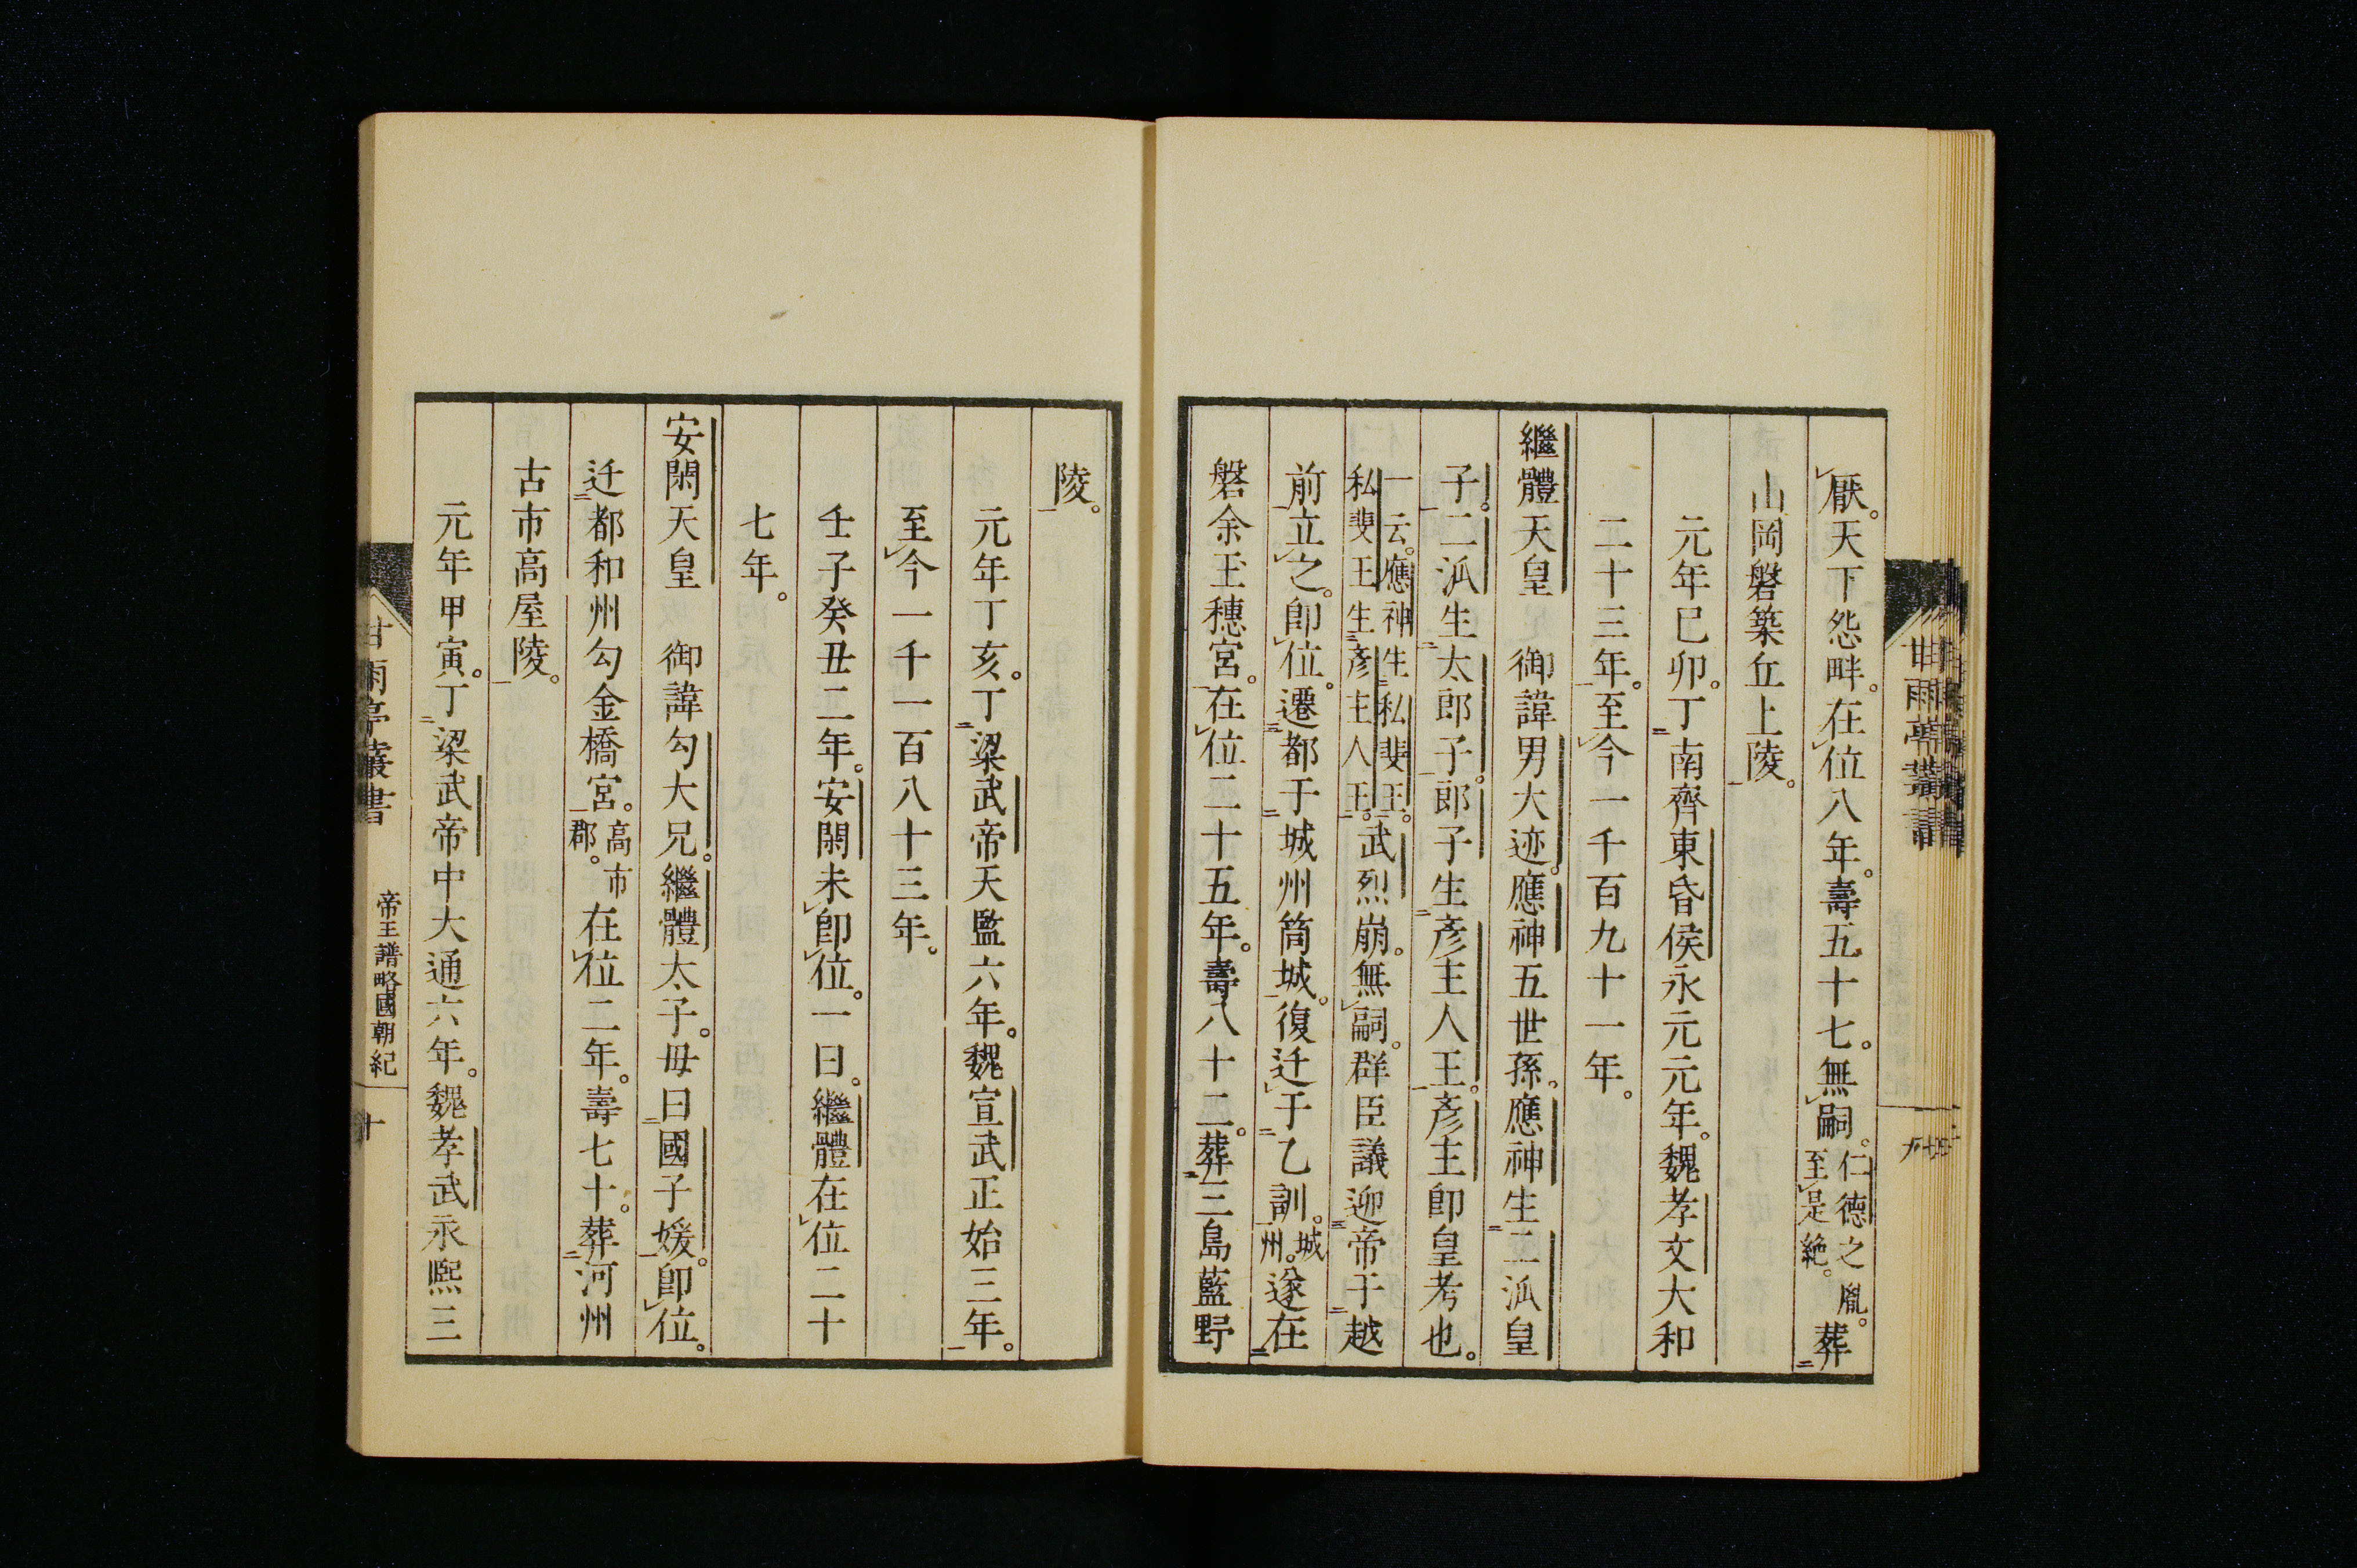 厭。天下怨畔。在位八年。壽五十七。無嗣。仁德之胤。至是絶。葬
山岡磐築丘上陵。
元年巳卯。丁南齊東昏侯永元元年。魏孝文大和
二十三年。至今一千百九十一年。
繼體天皇　御諱男大迹。應神五世孫。應神生二泒皇
子。二泒生太郎子。郎子生彥主人王。彥主卽皇考也。
一云。應神生私斐王。私斐王生彥主人王。武烈崩。無嗣。群臣議迎帝于越
前立之。卽位。遷都于城州筒城。復迁于乙訓。城州。遂在
磐余玉穗宮。在位二十五年。壽八十二。葬三島藍野
陵。
元年丁亥。丁梁武帝天監六年。魏宣武正始三年。
至今一千一百八十三年。
壬子癸丑二年。安閑未卽位。一曰。繼體在位二十
七年。
安閑天皇　御諱勾大兄。繼體太子。毋曰國子媛。卽位。
迁都和州勾金橋宮。高市郡。在位二年。壽七十。葬河州
古市高屋陵。
元年甲寅。丁梁武帝中大通六年。魏孝武永熙三
甘雨亭叢書　帝王譜略國朝紀　十